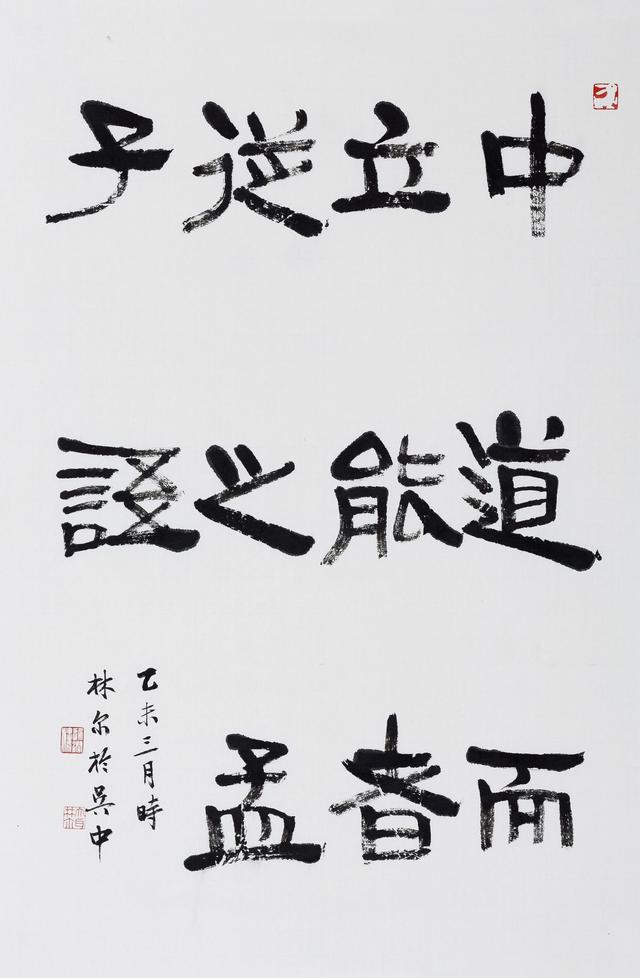 中道而
立能者
從之孟
子語
乙未三月時
林尔於吳中